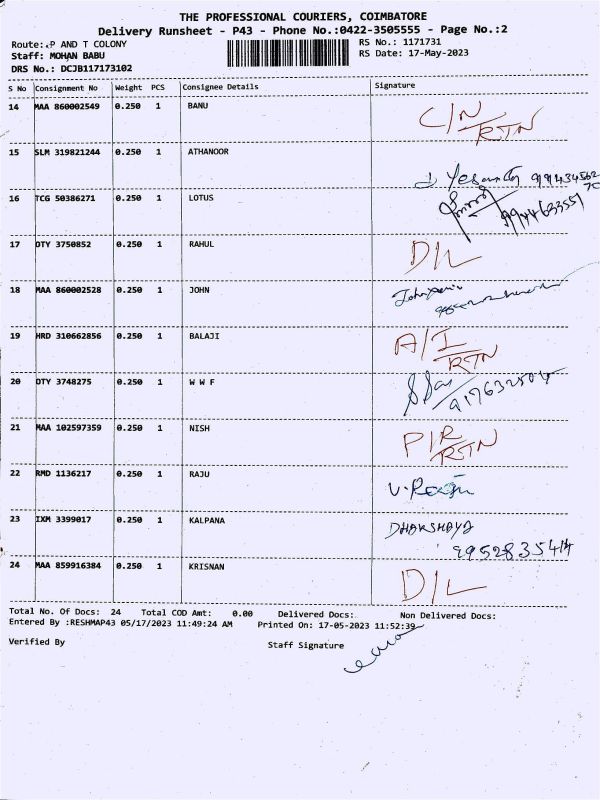 THE PROFESSIONAL COURIERS, COIMBATORE
Delivery Runsheet - P43 - Phone No.:0422-3505555 - Page No.:2
Route: P AND T COLONY RS No.: 1171731
Staff: MOHAN BABU RS Date: 17-May-2023
DRS No.: DCJB117173102
S No Consignment No Weight PCS Consignee Details Signature
14 MAA 860002549 0.250 1 BANU C/N
RTN
15 SLM 319821244 0.250 1 ATHANOOR
16 TCG 50386271 0.250 1 LOTUS
17 OTY 3750852 0.250 1 RAHUL D/L
18 MAA 860002528 0.250 1 JOHN
19 HRD 310662856 0.250 1 BALAJI A/I
RTN
20 OTY 3748275 0.250 1 W W F
21 MAA 102597359 0.250 1 NISH P/R
RTN
22 RMD 1136217 0.250 1 RAJU V.
23 IXM 3399017 0.250 1 KALPANA DHAKSHAYA
24 MAA 859916384 0.250 1 KRISNAN D/L
Total No. Of Docs: 24 Total COD Amt: 0.00 Delivered Docs: Non Delivered Docs:
Entered By :RESHMAP43 05/17/2023 11:49:24 AM Printed On: 17-05-2023 11:52:39
Verified By Staff Signature